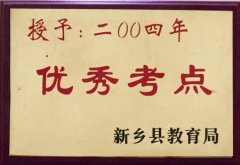 授予：二00四年
优秀考点
新乡县教育局